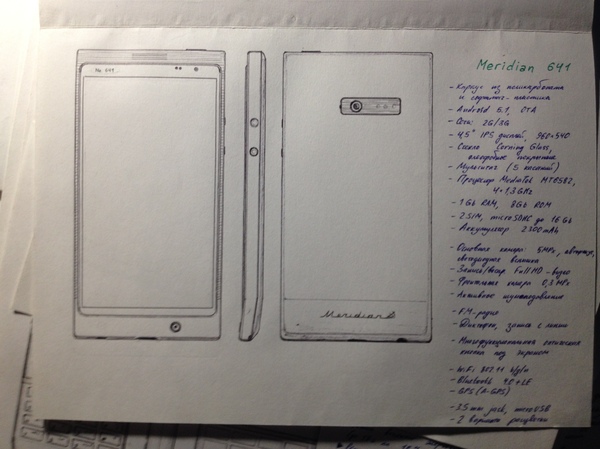 Meridian 641
- Корпус из поликарбоната
и софттач-пластика
- Android 5.1, OTA
- Сеть: 2G/3G
- 4,5" IPS дисплей, 960×540
- Стекло Corning Glass,
олеофобное покрытие
- Мультитач (5 касаний)
- Процессор MediaTek MT6582,
4×1,3 GHz
- 1 Gb RAM, 8Gb ROM
- 2 SIM, microSDHC до 16 Gb
- Аккумулятор 2300 mAh
- Основная камера: 5MPx, автофокус,
светодиодная вспышка
- Запись/воспр. Full HD-видео
- Фронтальная камера 0,3 MPx
- Активное шумоподавление
- FM-радио
- Диктофон, запись с линии
- Многофункциональная
кнопка под экраном
- WiFi 802.11 b/g/n
- Bluetooth 4.0+LE
- GPS (A-GPS)
- 3.5 mm jack, microUSB
- 2 варианта расцветки
Meridian